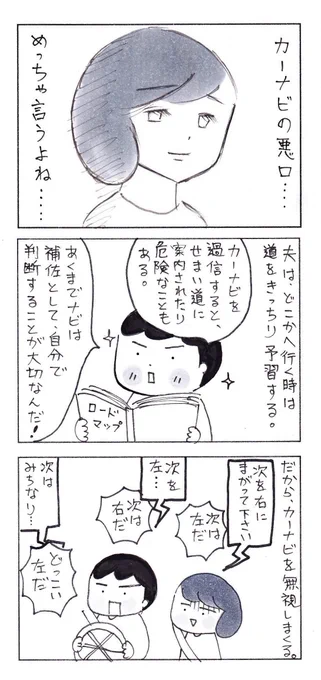 カーナビの悪口‥‥
めっちゃ言うよね‥‥‥
夫は、どこかへ行く時は
道をきっちり予習する。
カーナビを
過信すると、
せまい道に
案内されたり
危険なことも
ある。
あくまでナビは
補佐として、自分で
判断することが大切なんだ!
ロード
マップ
だから、カーナビを無視しまくる。
次を右に
まがって下さい
次は
左だ
次を
左‥
次は
右だ
次は
みちなり‥
どっこい
左だ